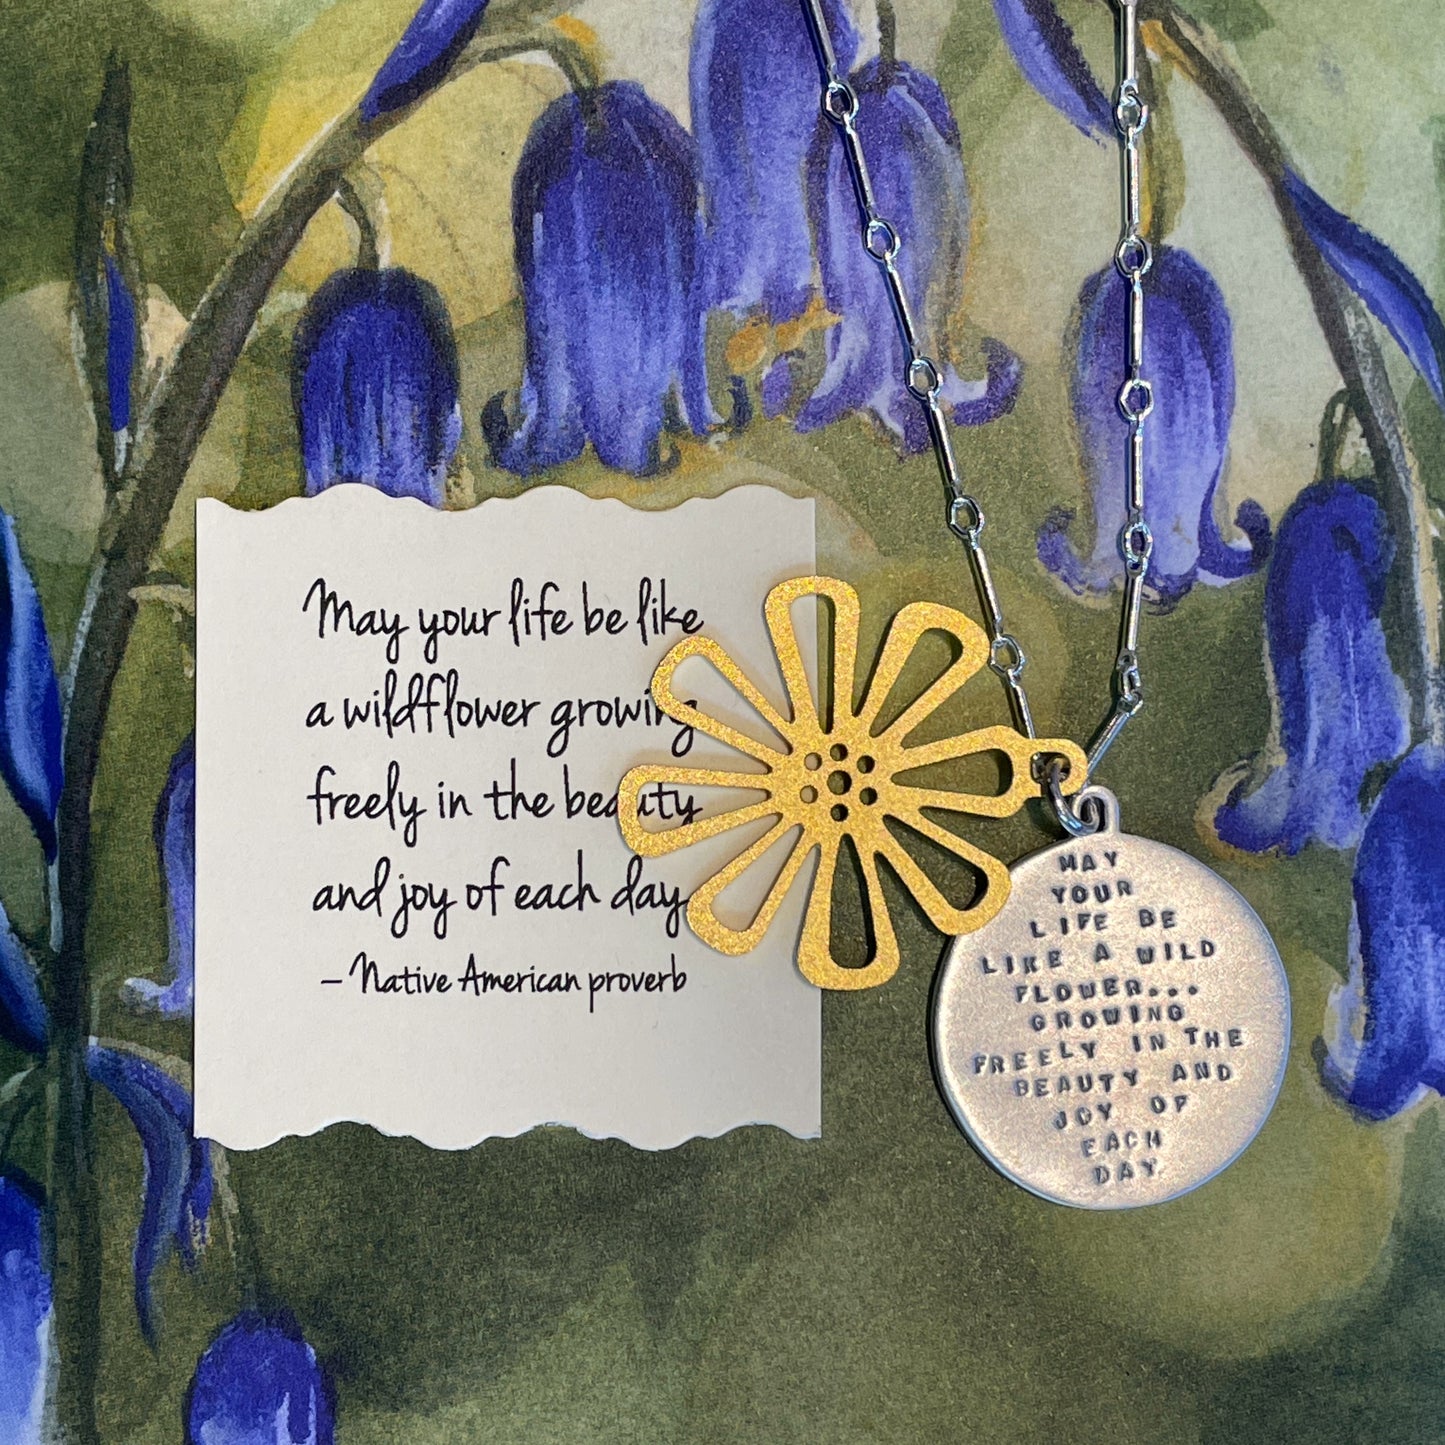 May your life be like
a wildflower growing
freely in the beauty
and joy of each day.
– Native American proverb
MAY
YOUR
LIFE BE
LIKE A WILD
FLOWER...
GROWING
FREELY IN THE
BEAUTY AND
JOY OF
EACH
DAY.